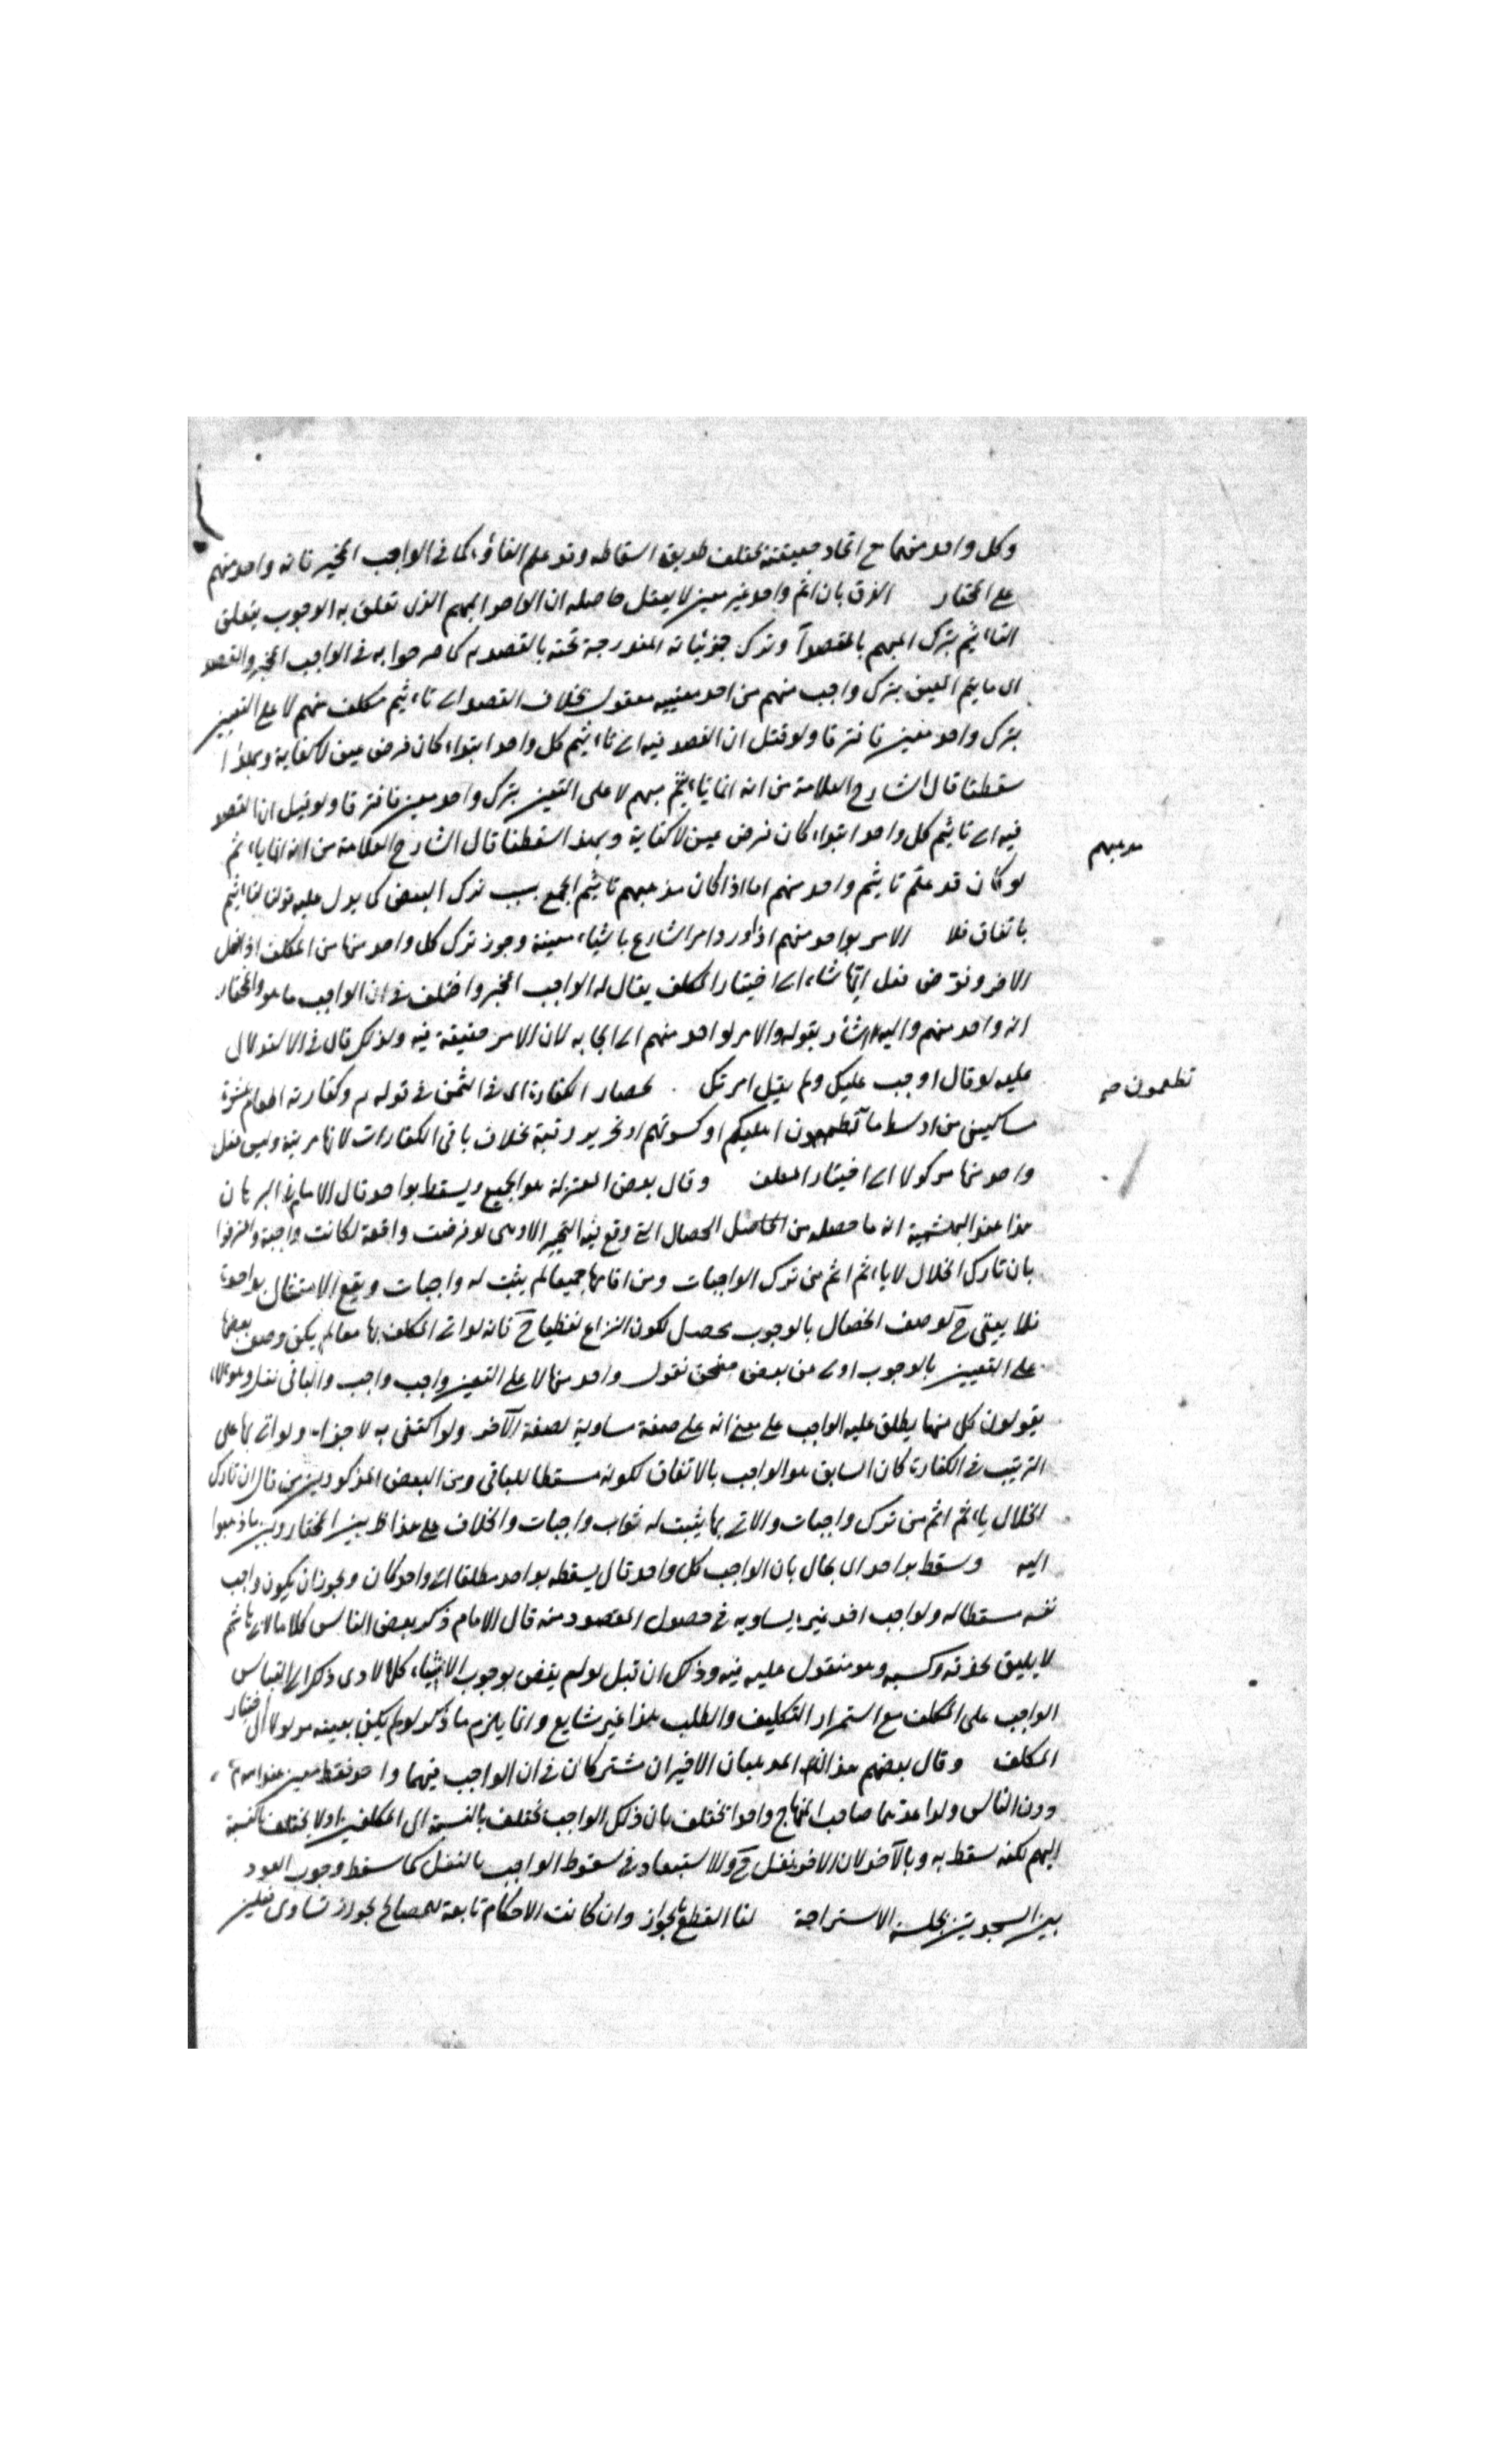 وكل واحد منهما مع اتحاد حقيقته يختلف طريق اسقاطه وقد علم الفاؤ كما في الواجب المخير فانه واحد منهم
على المختار الفرق بان اثم واحد غير معين لا يعقل حاصله ان الواحد المبهم الذي تعلق به الوجوب يتعلق
التاءثيم بترك المبهم بالمقصد وترك جزئياته المندرجة تحته بالقصد به كما مر جوابه في الواجب المخير والقصد
اى ما يتم المعين بترك واجب منهم من احد معنييه معقول بخلاف القصد اى تاءثيم مكلف منهم لا على التعيين
بترك واحد معين فافترقا ولو قيل ان القصد فيه اى تاءثيم كل واحد ابتداء كان فرض عين لا كفاية وبهذا
سقط ما قال الشارح العلامة من انه انما ياءثم مبهم لا على التعيين بترك واحد معين فافترقا ولو قيل ان القصد
فيه اى تاثيم كل واحد ابتداء كان فرض عين لا كفاية وبهذا سقط ما قال الشارح العلامة من انه انما ياءثم
مذهبهم
لو كان قد علم تاثيم واحد منهم اما اذا كان مذهبهم تاثيم الجميع بسبب ترك البعض كما يدل عليه قولنا
باتفاق فلا الامر بواحد منهم اذا ورد امر الشارع باشياء معينة وجوز ترك كل واحد منها من المكلف اذا فعل
الاخر وفوض فعل ايها شاء الى اختيار المكلف يقال له الواجب المخير واختلف في ان الواجب ما هو والمختار
انه واحد منهم واليه اشار بقوله والامر لواحد منهم اى ايجابه لان الامر حقيقة فيه ولذلك قال في الاستدلال
عليه لو قال اوجب عليك ولم يقل امرتك كخصال الكفارة اى في اليمين في قوله تع وكفارته اطعام عشرة
تطعمون صح
مساكين من اوسط ما تطعمون اهليكم او كسوتهم او تحرير رقبة بخلاف باقي الكفارات لانها مرتبة وليس فعل
واحد منها موكولا الى اختيار المكلف وقال بعض المعتزلة هو الجميع ويسقط بواحد قال الامام في البرهان
هذا عند البهشمية انه ما حصله من الحاصل الخصال التي وقع فيه التخيير الاولى لو فرضت واقعة لكانت واجبة واعترفوا
بان تارك الخلال لا ياءثم اثم من ترك الواجبات ومن اقامها جميعا لم يثبت له واجبات ويقع الامتثال بواحدة
فلا يبقى ح لوصف الخصال بالوجوب محصل لكون النزاع لفظيا ح فانه لو اتى المكلف بها معا لم يكن وصف بعضها
على التعيين بالوجوب اولى من بعض فنحن نقول واحد منها لا على التعيين واجب واجب والباقي نفل وهؤلاء
يقولون كل منها يطلق عليه الواجب على معنى انه على صفة مساوية لصفة الآخر ولو اكتفى به لاجزاء ولو اتى بها على
الترتيب في الكفارة كان السابق هو الواجب بالاتفاق لكونه مسقطا للباقي ومن البعض المذكورين من قال ان تارك
الخلال ياءثم اثم من ترك واجبات والاتى بها يثبت له ثواب واجبات والخلاف على هذا ظ بين المختار وبين ما ذهبوا
اليه وسقط بواحد اى بحال بان الواجب كل واحد قال يسقط بواحد مطلقا اى واحد كان ويجوز ان يكون واجب
نفسه مسقطا له ولواجب اخر غيره يساويه في حصول المقصود منه قال الامام ذكر بعض الناس كلاما لابى هاشم
لا يليق بحذقه وكسبه وهو منقول عليه فيه وذلك ان قيل لو لم يقض بوجوب الاشياء كلها لادى ذلك الى التباس
الواجب على المكلف مع استمرار التكليف والطلب بهذا غير شايع وانما يلزم ما ذكر لو لم يكن بعينه موكولا الى اختيار
المكلف وقال بعضهم هذا المذهبان الاخيران مشتركان في ان الواجب فيهما واحد فقط معين عند الله تع
دون الناس ولذا عدهما صاحب المنهاج واحدا يختلف بان ذلك الواجب يختلف بالنسبة الى المكلفين او لا يختلف بالنسبة
اليهم لكنه سقط به وبالآخر لان الاخر نفل ح ولا استبعاد في سقوط الواجب بالنفل كما سقط وجوب العود
بين السجدتين بجلسة الاستراحة لنا القطع بالجواز وان كانت الاحكام تابعة للمصالح لجواز تساوى فعلين